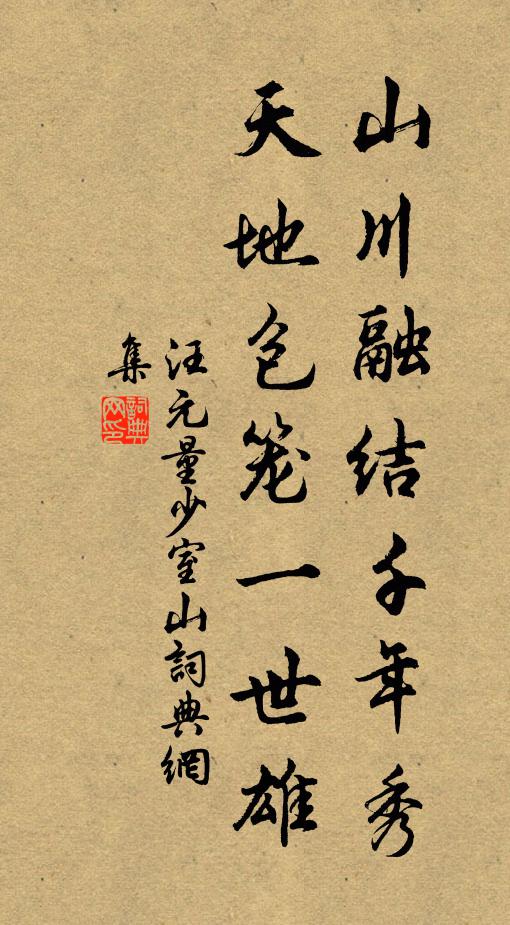 山川融结千年秀
天地包笼一世雄
汪元量少室山詞典網
集
詞典网印